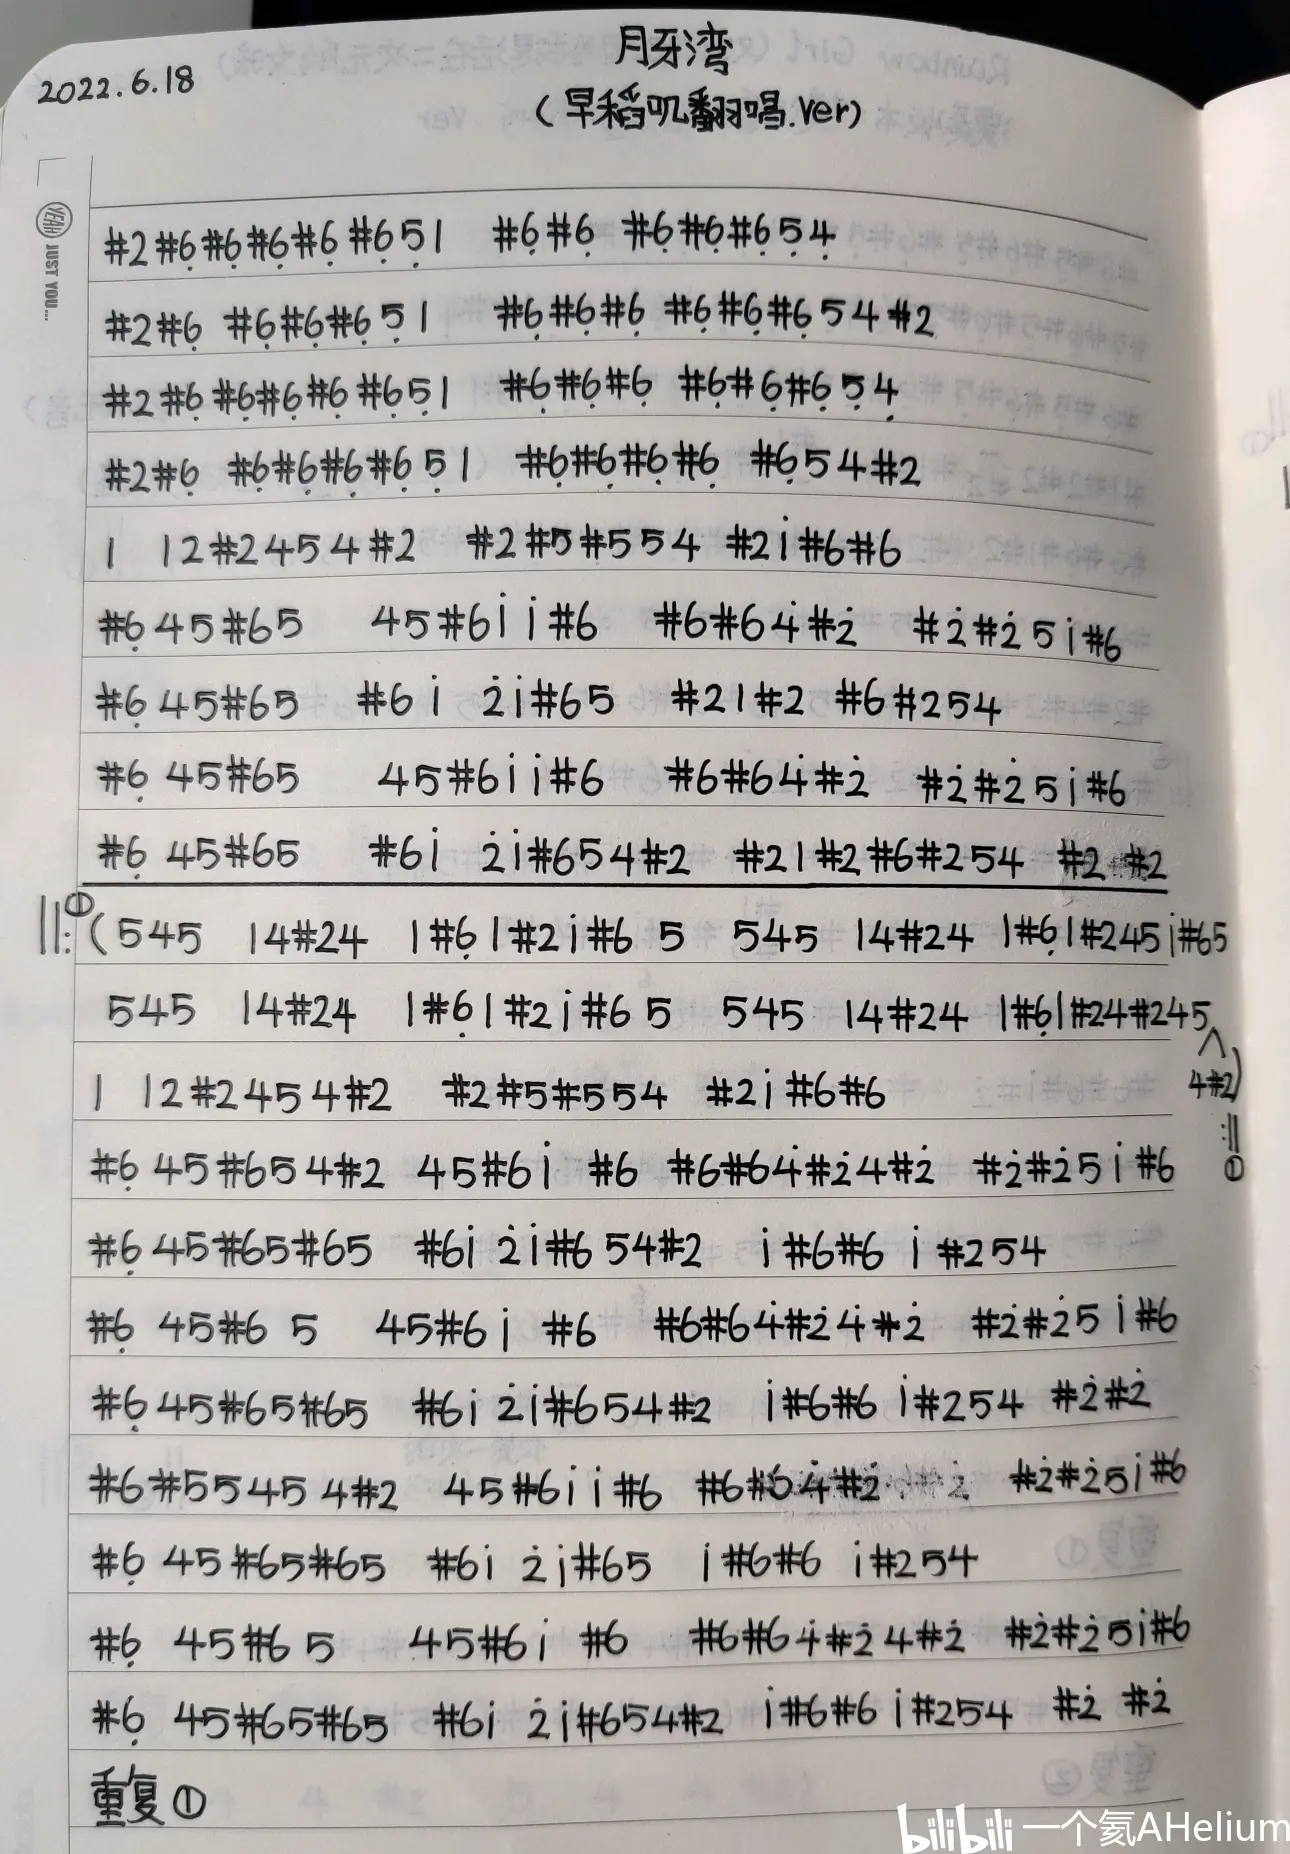 2022.6.18
月牙湾
(早稻叽翻唱.Ver)
YEAH JUST YOU...
#2#6̣#6̣#6̣#6̣ #6̣5̣1 #6̣#6̣ #6̣#6̣#6̣5̣4̣
#2#6̣ #6̣#6̣#6̣5̣1 #6̣#6̣#6̣ #6̣#6̣#6̣54#2
#2#6̣ #6̣#6̣#6̣#6̣5̣1 #6̣#6̣#6̣ #6̣#6̣#6̣5̣4̣
#2#6̣ #6̣#6̣#6̣#6̣5̣1 #6̣#6̣#6̣#6̣ #6̣54#2
1 12#2454#2 #2#5#554 #2i̇#6#6
#6̣45#65 45#6i̇i̇#6 #6#64̇#2̇ #2̇#2̇5i̇#6
#6̣45#65 #6i̇ 2̇i̇#65 #21#2 #6#254
#6̣ 45#65 45#6i̇i̇#6 #6#64̇#2̇ #2̇#2̇5i̇#6
#6̣ 45#65 #6i̇ 2̇i̇#654#2 #21#2#6#254 #2 #2
||:① (545 14#24 1#6̣1#2i̇#6 5 545 14#24 1#6̣1#245i̇#65
545 14#24 1#6̣1#2i̇#6 5 545 14#24 1#6̣1#24#245
4#2) :||①
1 12#2454#2 #2#5#554 #2i̇#6#6
#6̣ 45#654#2 45#6i̇ #6 #6#64̇#2̇4#2̇ #2̇#2̇5i̇#6
#6̣ 45#65#65 #6i̇ 2̇i̇#654#2 i̇#6#6 i̇#254
#6̣ 45#6 5 45#6i̇ #6 #6#64̇#2̇4̇#2̇ #2̇#2̇5i̇#6
#6̣45#65#65 #6i̇ 2̇i̇#654#2 i̇#6#6 i̇#254 #2̇#2̇
#6#5545 4#2 45#6i̇i̇#6 #6#64̇#2̇ #2̇#2̇5i̇#6
#6̣ 45#65#65 #6i̇ 2̇i̇#65 i̇#6#6 i̇#254
#6̣ 45#6 5 45#6i̇ #6 #6#64̇#2̇4#2̇ #2̇#2̇5i̇#6
#6̣ 45#65#65 #6i̇ 2̇i̇#654#2 i̇#6#6i̇#254 #2̇ #2̇
重复①
bilibili 一个氦AHelium